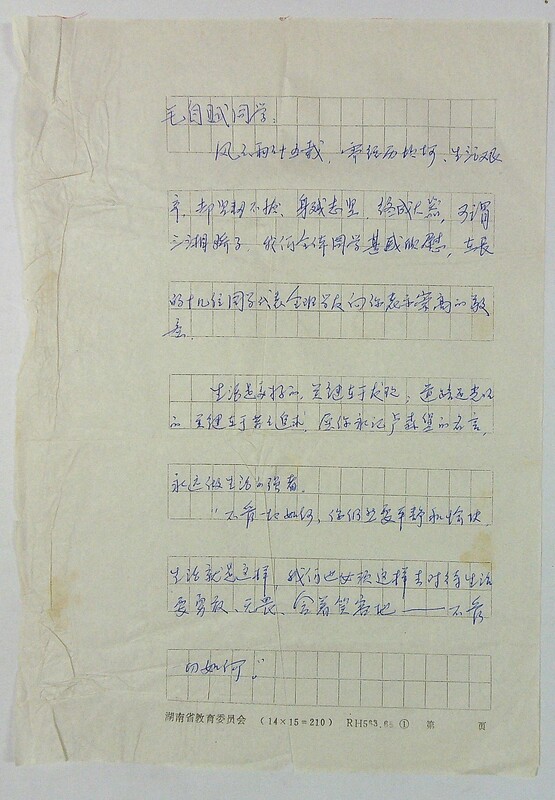 毛自赋同学:
风雨廿五载,寒经历坎坷、生活艰
辛,却坚韧不拔、身残志坚,终成大器,可谓
三湘骄子,我们全体同学甚感欣慰,在长
的十几位同学代表全班学友向你表示崇高的敬
意。
生活是美好的,关键在于发现,道路是光明
的关键在于苦苦追求,愿你永记卢森堡的名言,
永远做生活的强者。
"不管一切如何,你仍然要平静和愉快,
生活就是这样,我们也必须这样去对待生活
要勇敢、无畏、含着笑容地——不管
一切如何。"
湖南省教育委员会 (14×15=210) RH583.88 ① 第 页